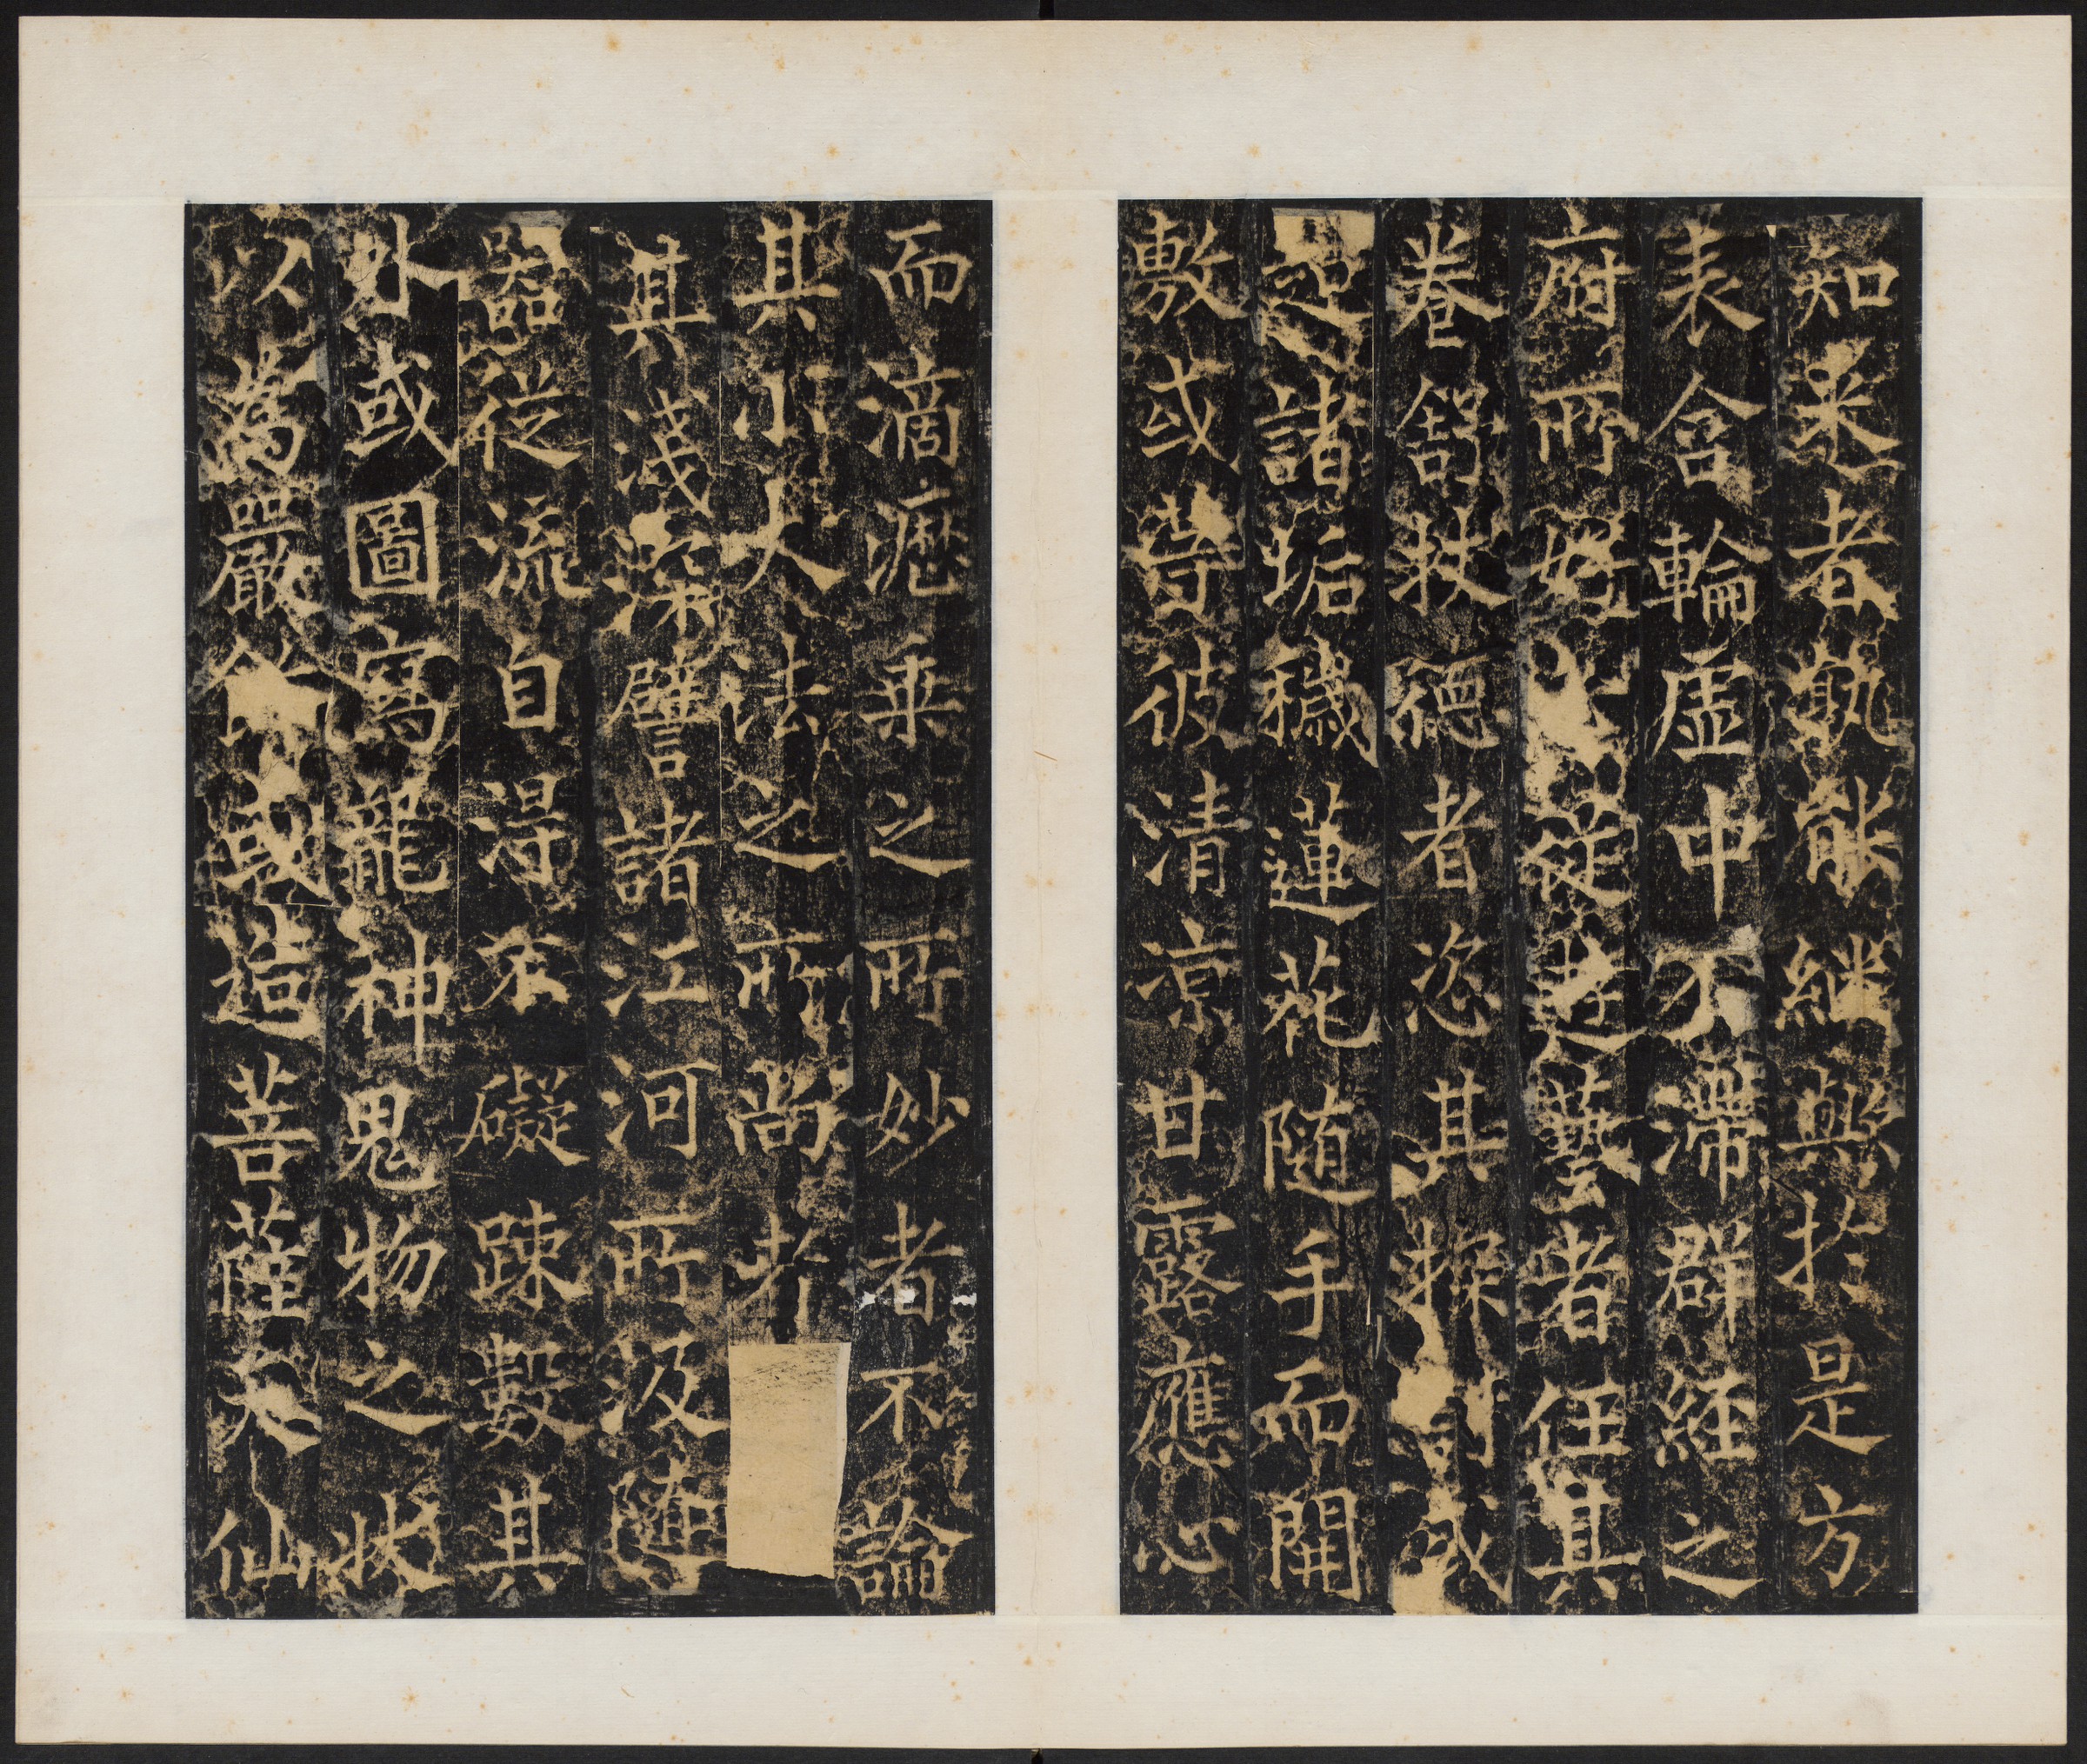 知迷者孰能継與於是方
表含輪虛中不滯群經之
府所好從遊藝者任其
卷舒扙德者恣其探或
諸垢穢蓮花随手而開
敷或等彼清涼甘露應心
而滴瀝乗之所妙者不論
其小大法之所尚者
其淺深譬諸江河所汲随
器從流自得不礙踈數其
外或圖寫龍神鬼物之状
以為嚴飾或造菩薩天仙